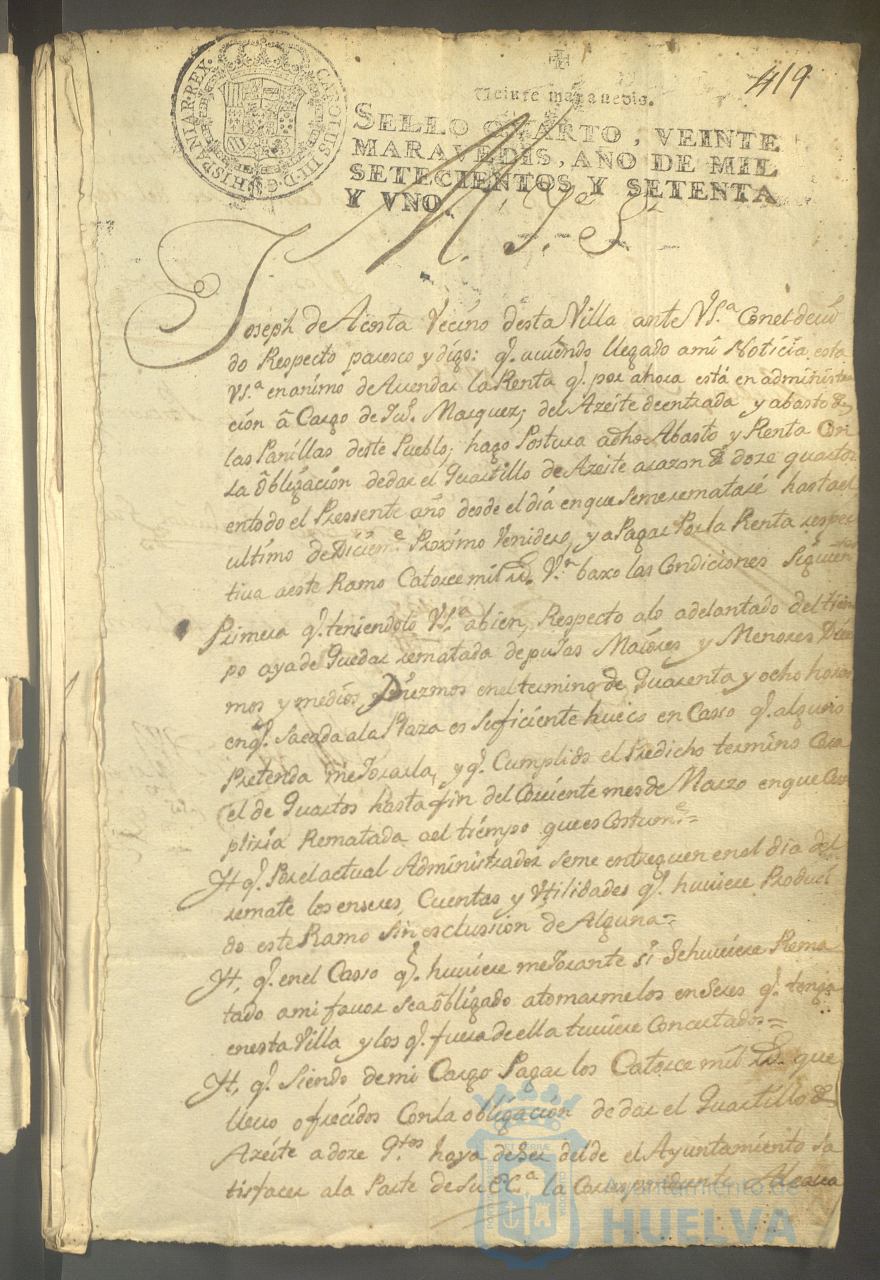 419
CAROLUS III D. G. HISPANIAR. REX.
Veinte maravedis.
SELLO QUARTO, VEINTE
MARAVEDIS, AÑO DE MIL
SETECIENTOS Y SETENTA
Y UNO.
M. Ye. S.r
Joseph de Acosta Vecino desta Villa ante VS.a Con el devi
do Respecto paresco y digo: q.e aviendo llegado a mi Noticia esta
VS.a en animo de Arrendar la Renta q.e por ahora está en administra
ción â Cargo de Ju.o Marquez, del Azeite de entrada y abasto de
las Panillas deste Pueblo, hago Postura a dho Abasto y Renta Con
la obligación de dar el Quartillo de Azeite a razon de doze quartos
en todo el Pressente año desde el día en que se me rematare hasta el
ultimo de Diciem.e Proximo Venidero, y a Pagar Por la Renta respec
tiva a este Ramo Catorce mil rr.s V.n baxo las Condiciones Siguien
Primera q.e teniendolo VS.a a bien, Respecto a lo adelantado del tiem
po aya de Quedar rematada de pujas Maiores y Menores Diez
mos y medios Diezmos en el termino de Quarenta y ocho horas
en q.e sacada a la Plaza es suficiente hueco en Casso q.e alguno
Pretenda mejorarla, y q.e Cumplido el Predicho termino Corra
el de Quartos hasta fin del Corriente mes de Marzo en que Cum
pliria Rematada a el tiempo que es Costum.e=
Yt q.e Por el actual Administrador se me entreguen en el dia del
remate los enseres, Cuentas y Utilidades q.e huviere Produci
do este Ramo sin esclussion de Alguna=
Yt, q.e en el Casso q.e huviere mejorante si se huviere Rema
tado a mi favor sea obligado a tomarme los enseres q.e tenga
en esta Villa y los q.e fuera de ella tuviere Concertados=
Yt, q.e siendo de mi Cargo Pagar los Catorce mil rr.s que
llevo ofrecidos Con la obligación de dar el Quartillo de
Azeite a doze q.tos haya de ser del de el Ayuntamiento sa
tisfacer a la Parte de Su EX.a la Correspondiente Alcava
Ayuntamiento de
HUELVA